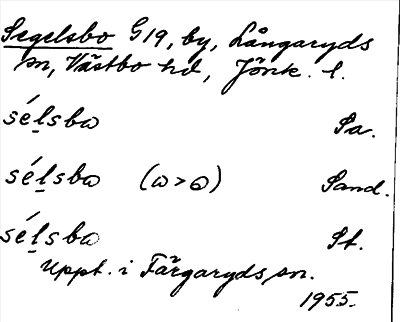 Segelsbo G19, by, Långaryds
sn, Västbo hd, Jönk. l.
sé̱lsbɷ Sa.
sé̱lsbɷ (ɷ > ɷ) Sand.
sé̱lsbɷ St.
Uppt. i Färgaryds sn.
1955.